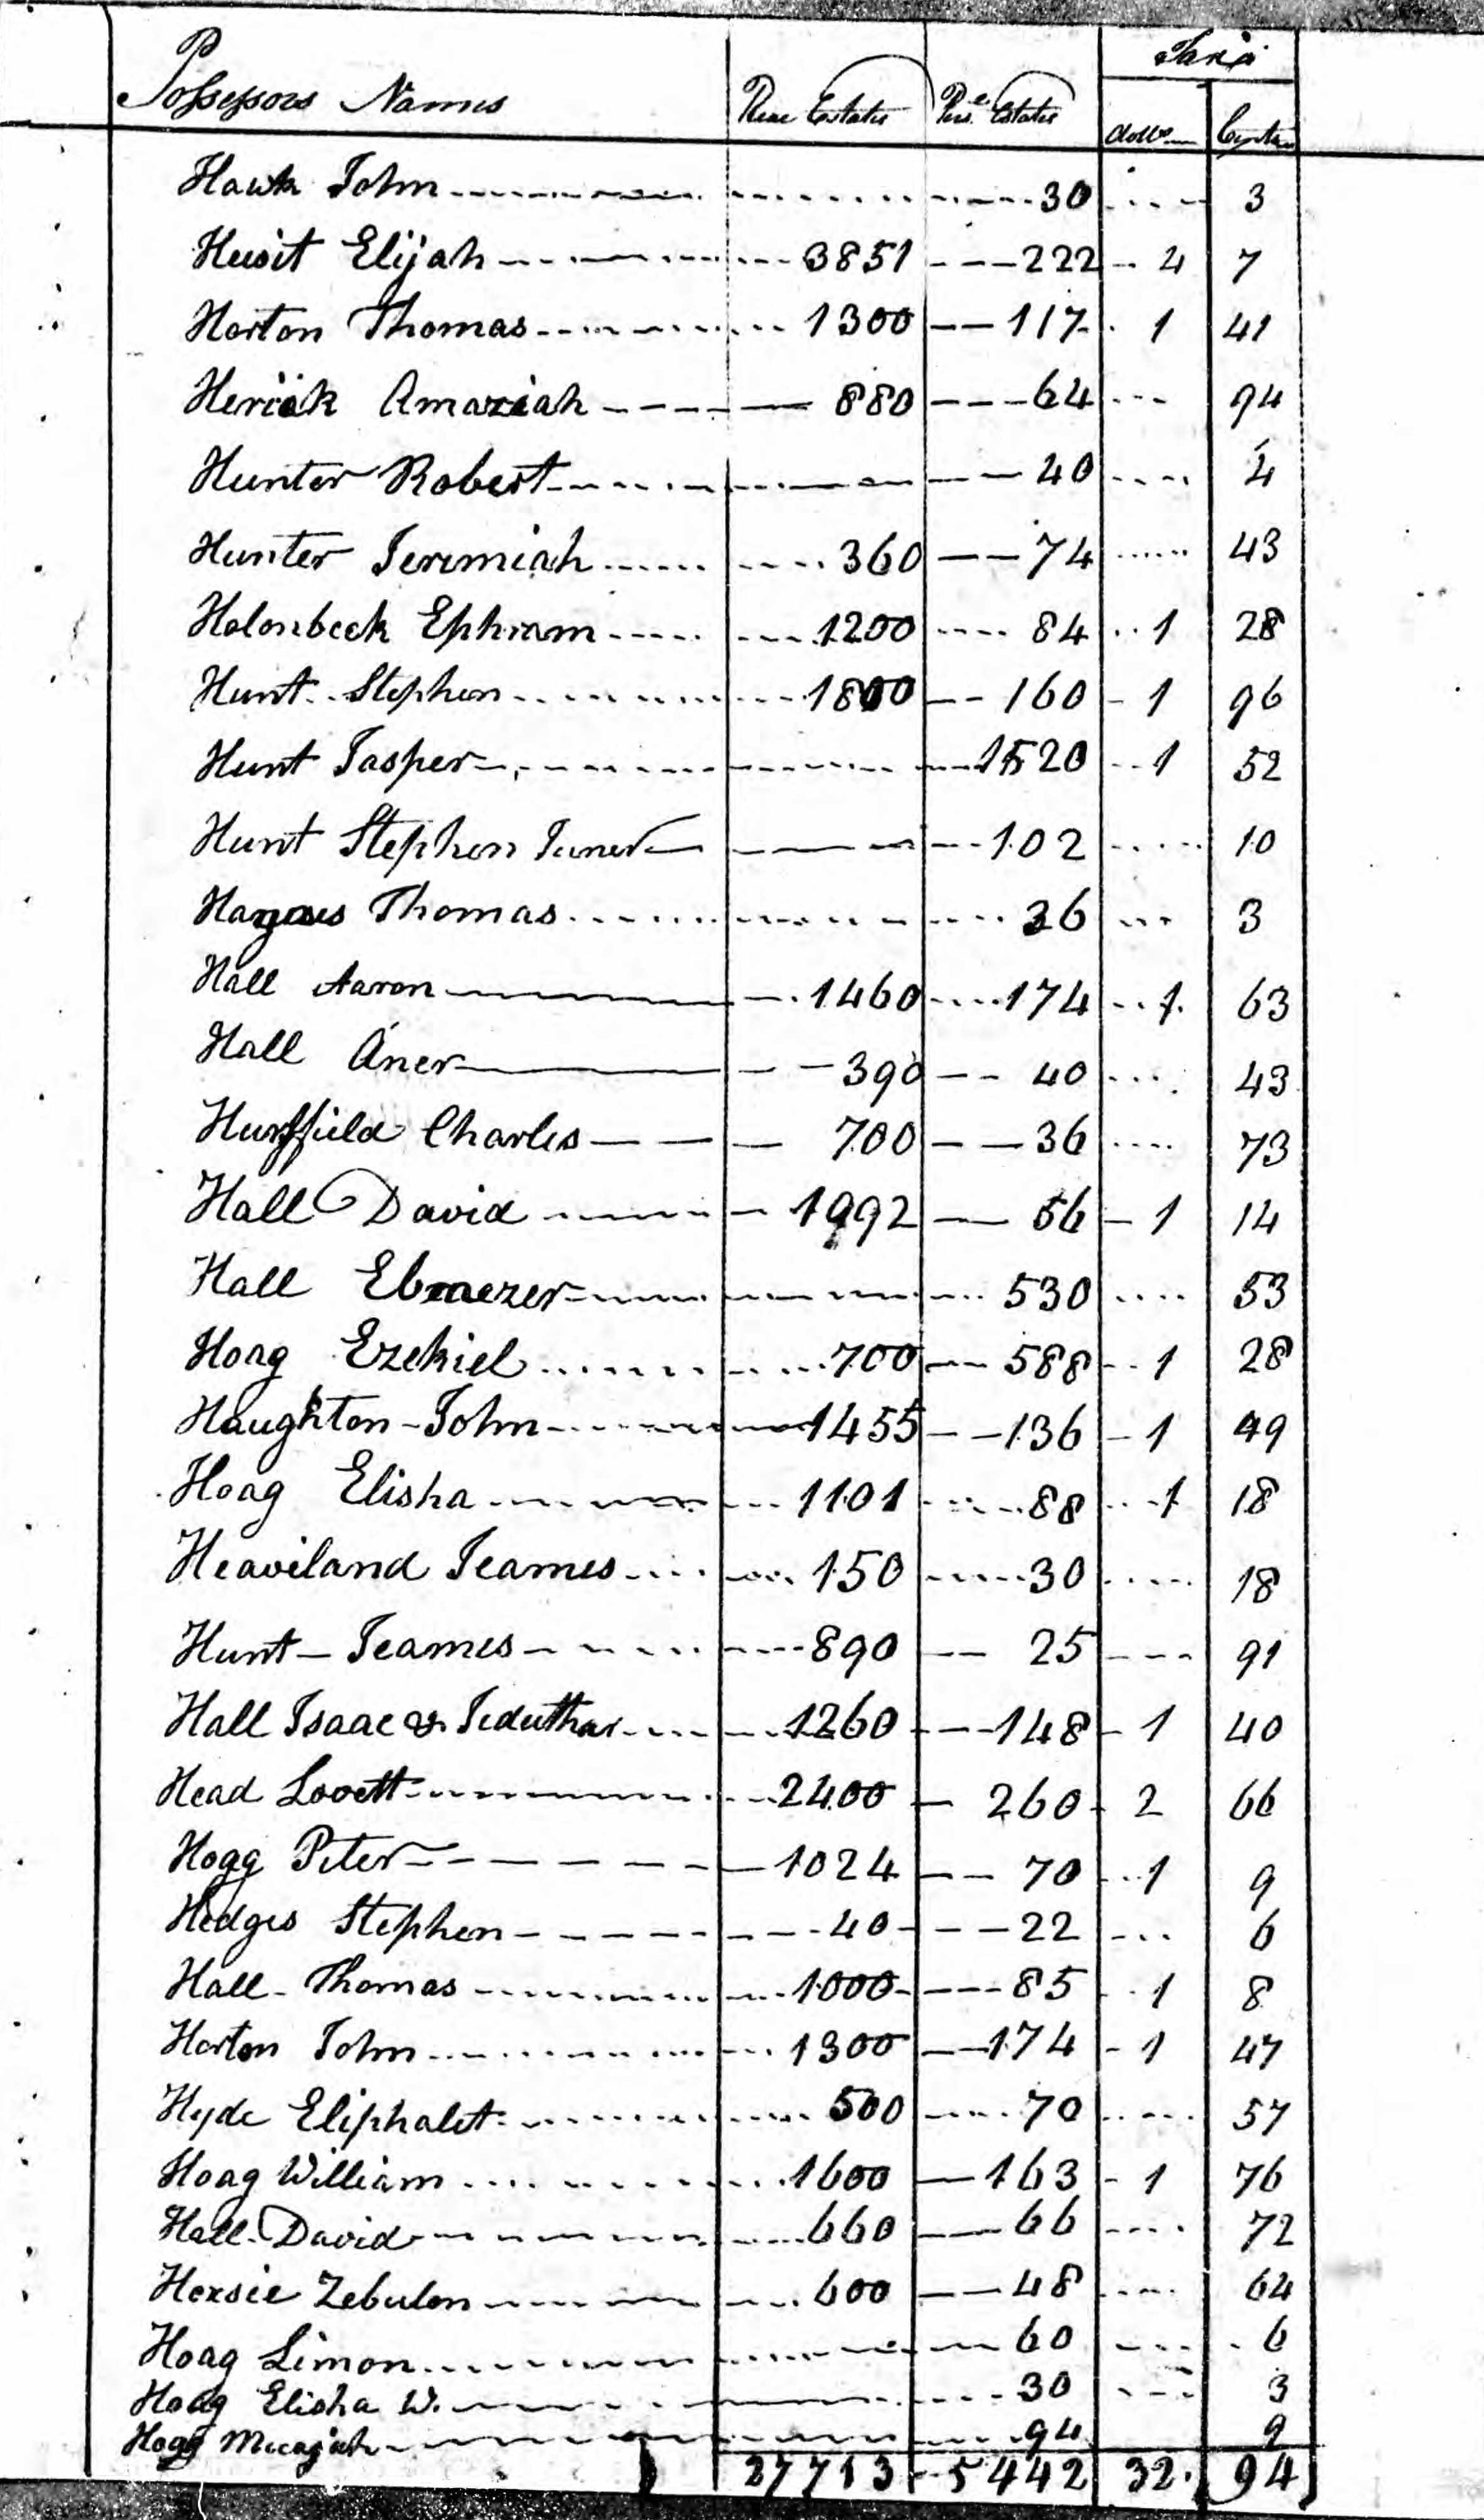 Possessors Names Real Estate Pers. Estate Taxes
dolls. Cents
Hawk John 30 3
Huit Elijah 3851 222 4 7
Horton Thomas 1300 117 1 41
Herick Amaziah 880 64 94
Hunter Robert 40 4
Hunter Jerimiah 360 74 43
Holonbeck Ephram 1200 84 1 28
Hunt Stephen 1800 160 1 96
Hunt Jasper 1520 1 52
Hunt Stephen Juner 102 10
Thomas 36 3
Hall Aaron 1460 174 1 63
Hall Aner 390 40 43
Hurffield Charles 700 36 73
Hall David 1992 56 1 14
Hall Ebnezer 530 53
Hoag Ezekiel 700 588 1 28
Haughton John 1455 136 1 49
Hoag Elisha 1101 88 1 18
Heaviland Jeames 150 30 18
Hunt Jeames 890 25 91
Hall Isaac & Jeduthar 1260 148 1 40
Head Lovett 2400 260 2 66
Hogg Peter 1024 70 1 9
Hedges Stephen 40 22 6
Hall Thomas 1000 85 1 8
Horton John 1300 174 1 47
Hyde Eliphalet 500 70 57
Hoag William 1600 163 1 76
Hall David 660 66 72
Hersie Zebulon 600 48 64
Hoag Simon 60 6
Hoag Elisha W. 30 3
Hoag Micajah 94 9
27713 5442 32. 94